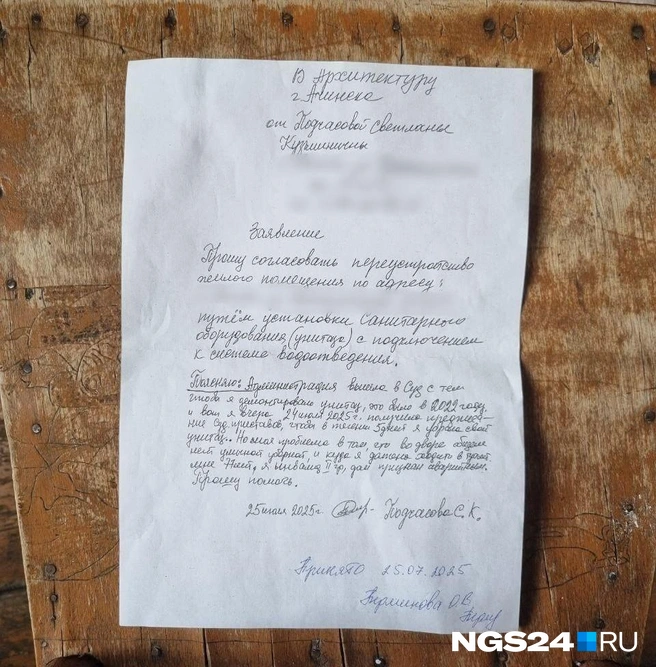 В Архитектуру
г. Ачинска
от Подчасовой Светланы
Кузьминичны
Заявление
Прошу согласовать переустройство
жилого помещения по адресу:
путём установки санитарного
оборудования (унитаза) с подключением
к системе водоотведения.
Поясняю: Администрация вышла в Суд с тем
чтобы я демонтировала унитаз, это было в 2022 году.
и вот я вчера 24 июля 2025 г. получила предписа-
ние суд. приставов, чтобы в течении 5 дней я убрала свой
унитаз. Но моя проблема в том, что во дворе общем
нет уличной уборной, и куда я должна ходить в
мне 77 лет, я инвалид II гр, дом признан аварийным.
Прошу помочь.
25 июля 2025 г - Подчасова С. К.
Принято 25.07.2025
О.В.
NGS24.RU